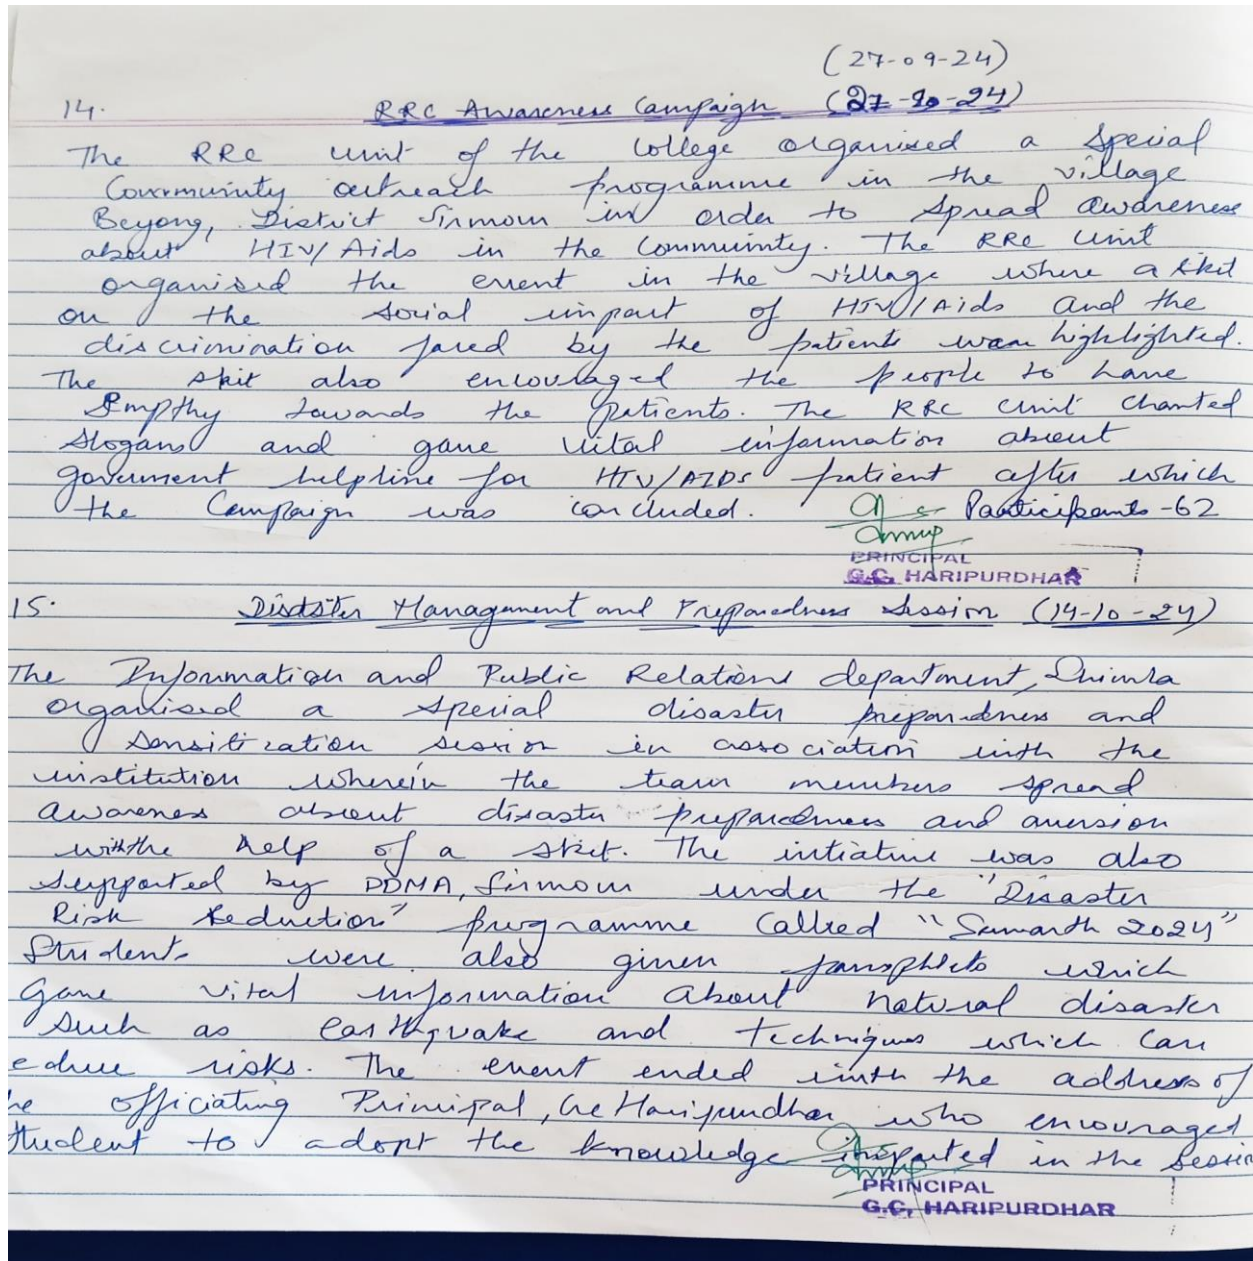 (27-09-24)
14. RRC Awareness Campaign (27-10-24)
The RRC unit of the College organised a Special
Community outreach programme in the village
Beyong, District Sirmour in order to spread awareness
about HIV/Aids in the Community. The RRC Unit
organised the event in the village where a skit
on the social impact of HIV/Aids and the
discrimination faced by the patients was highlighted.
The skit also encouraged the people to have
Empthy towards the patients. The RRC Unit chanted
slogans and gave vital information about
government helpline for HIV/AIDS patient after which
the Campaign was concluded. Participants-62
PRINCIPAL
G.C. HARIPURDHAR
15. Disaster Management and Preparedness Session (14-10-24)
The Information and Public Relations department, Shimla
organised a special disaster preparedness and
Sensitization session in association with the
institution wherein the team members spread
awareness about disaster preparedness and aversion
with the help of a skit. The intiative was also
supported by DDMA, Sirmour under the "Disaster
Risk Reduction" programme Called "Samarth 2024"
Students were also given pamphlets which
gave vital information about natural disaster
such as earthquake and techniques which can
educe risks. The event ended with the address of
he officiating Principal, GC Haripurdhar who encouraged
tudent to adopt the knowledge imparted in the Sessio
PRINCIPAL
G.C. HARIPURDHAR